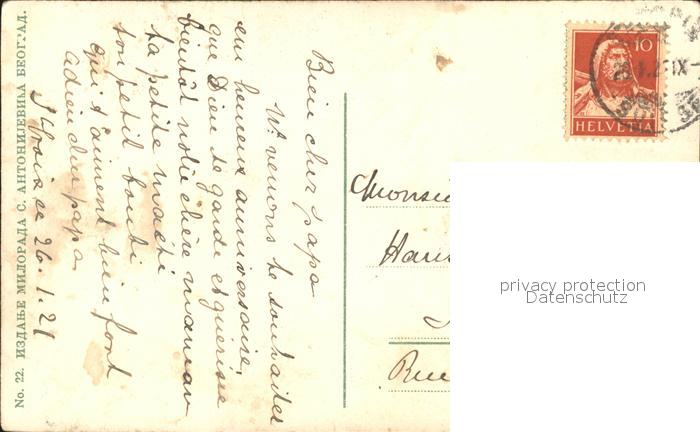 No. 22. ИЗДАЊЕ МИЛОРАДА С. АНТОНИЈЕВИЋА БЕОГРАД.
Bien cher papa
N. venons te souhaiter
un heureux anniversaire,
que Dieu te garde et guérisse
bientôt notre chère maman
ta petite
ton petit
qui t'aiment bien fort
adieu cher papa
Ste Croix ce 26.1.21
10
HELVETIA
Monsi
Rue
privacy protection
Datenschutz